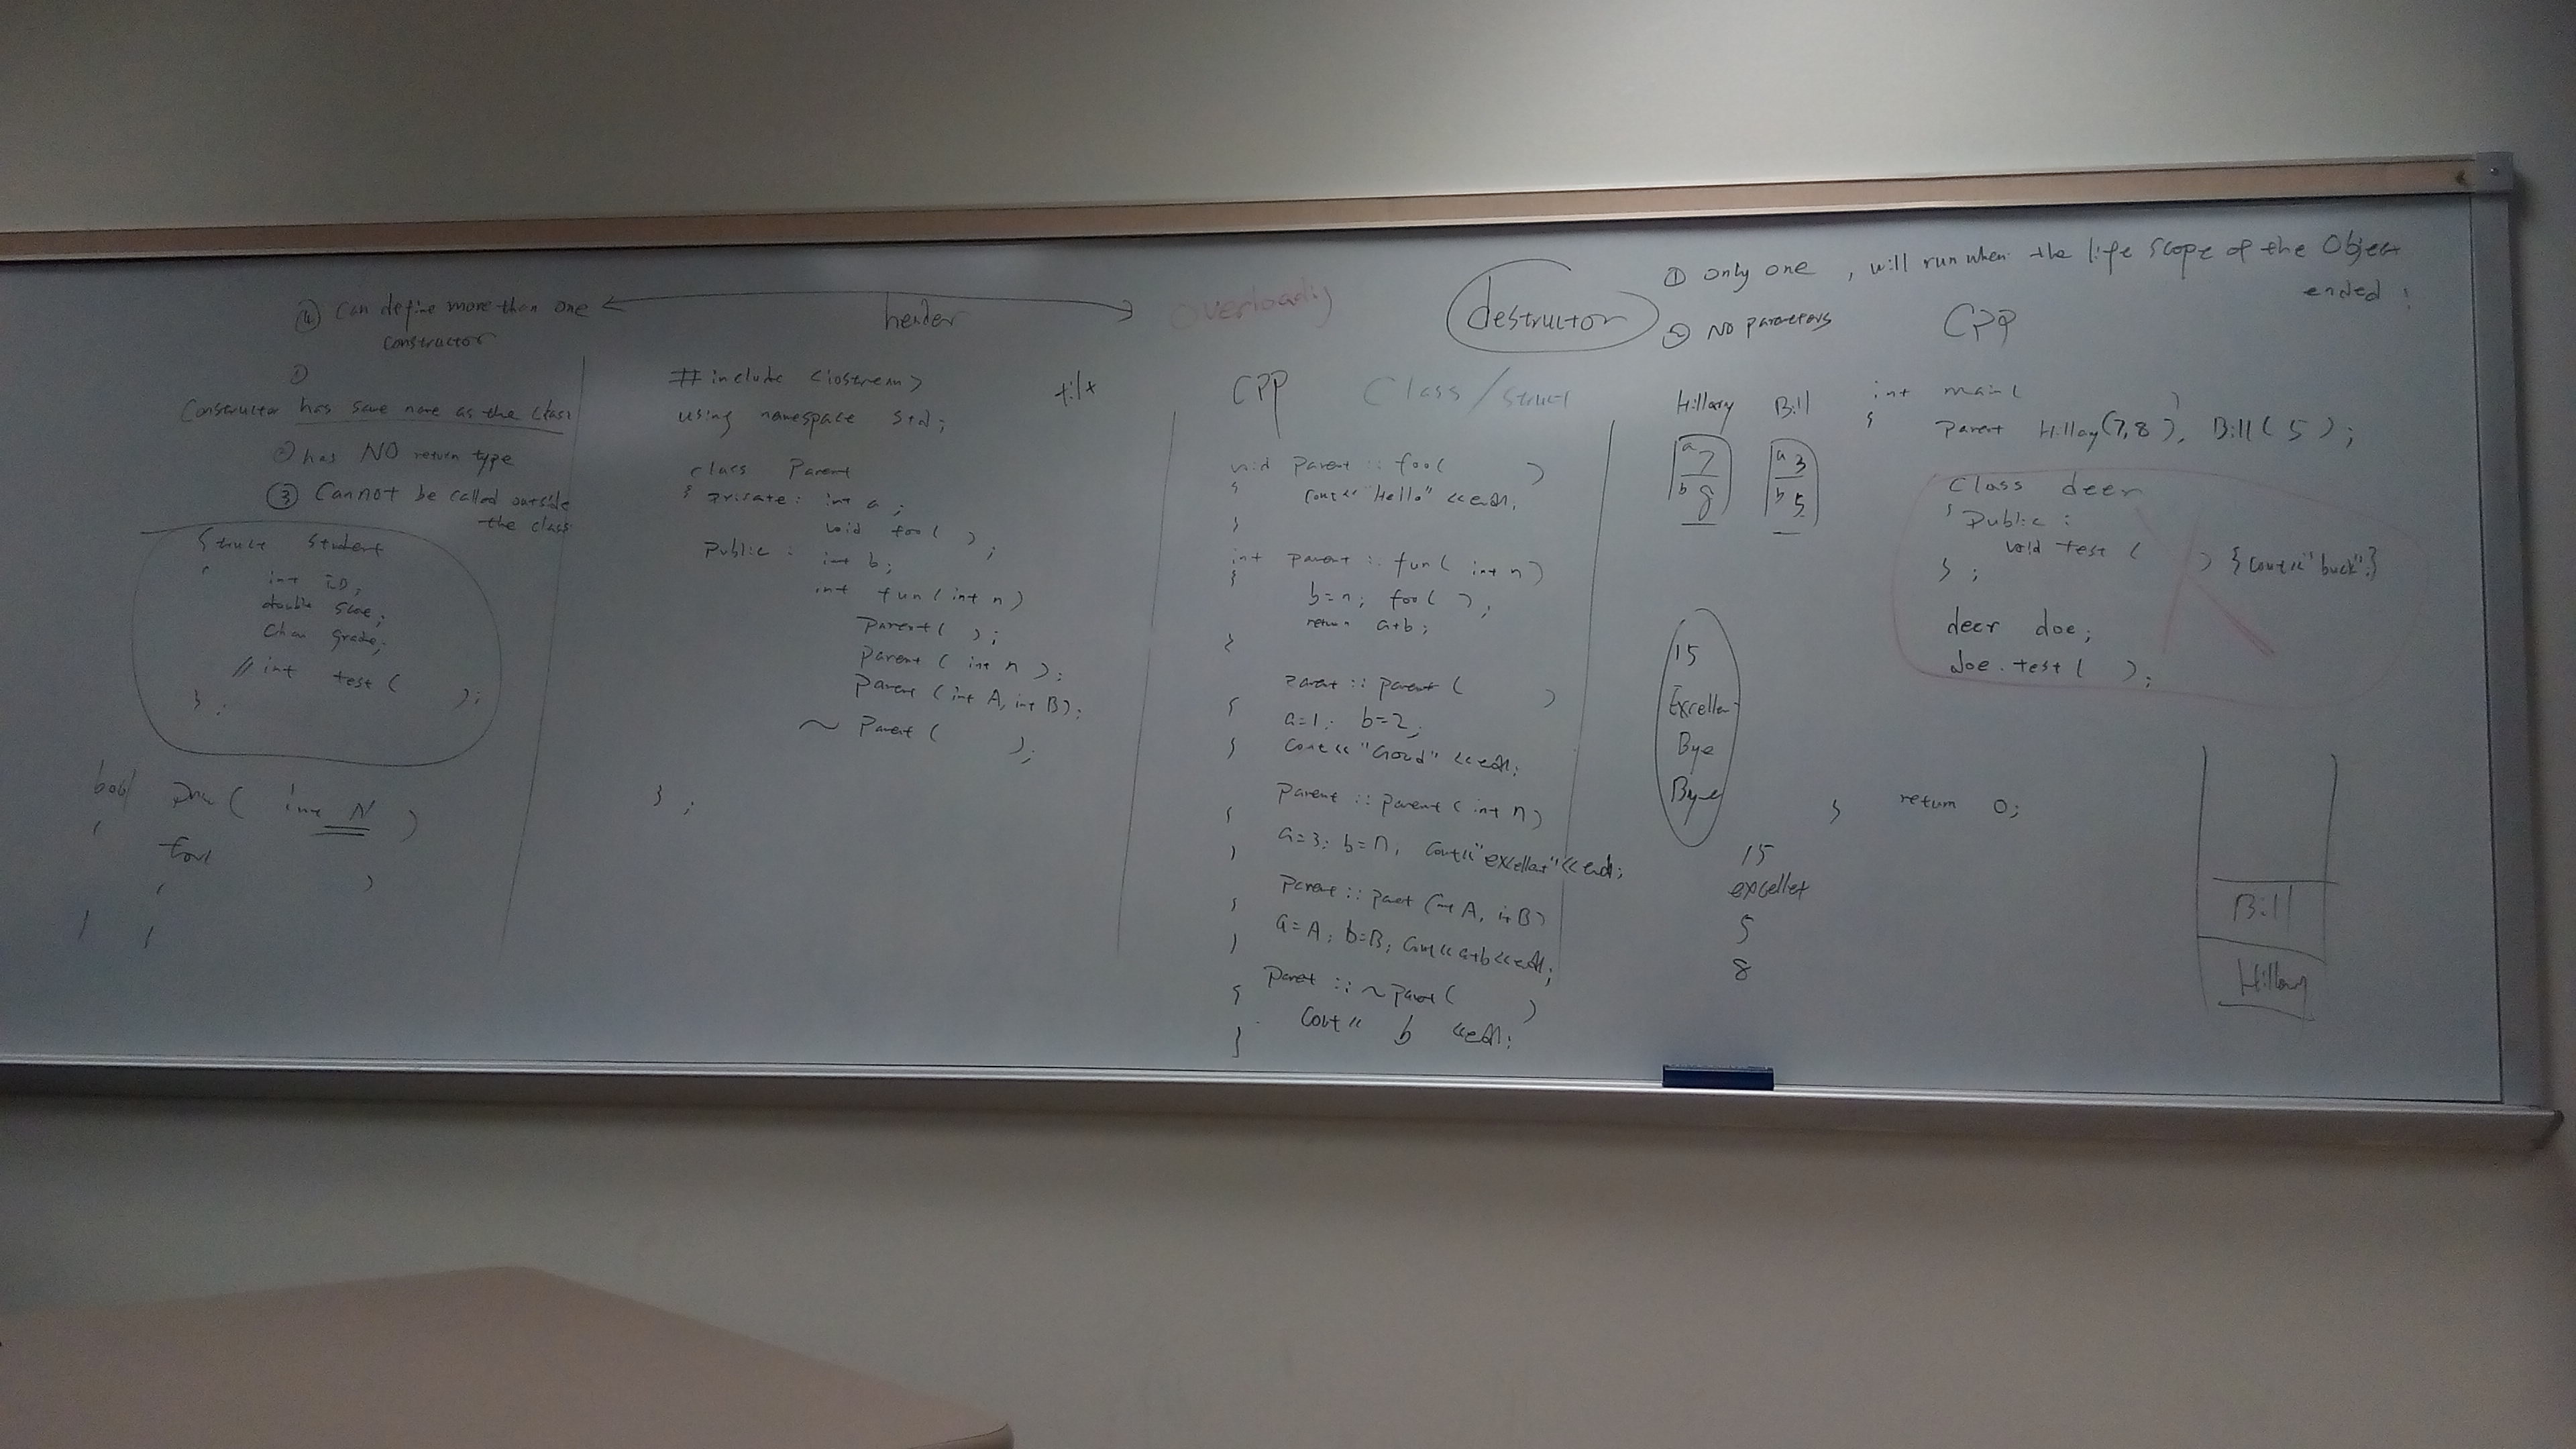 ④ Can define more than one
constructor
①
Constructor has same name as the class
② has NO return type
③ Cannot be called outside
the class
Struct Student
{
int ID;
double score;
Char grade;
// int test ( );
} ;
bool ( int N )
{
for(
{ )
} }
header
# include <iostream>
using namespace std;
class Parent
{ private: int a;
void foo( );
Public : int b;
int fun(int n)
Parent( );
Parent ( int n );
Parent (int A, int B);
~ Parent ( );
} ;
tilt
Overloadig
CPP Class / Struct
void Parent :: foo( )
{ cout<< "Hello" <<endl;
}
int parent :: fun( int n)
{
b=n; foo( );
return a+b;
}
Parent :: parent ( )
{ a=1; b=2;
} cout<< "Good" <<endl;
Parent :: parent ( int n)
{ a=3; b=n, cout<<"excellent"<<endl;
}
Parent :: paret (int A, int B)
{ a=A; b=B; cout<<a+b<<endl;
}
Paret :: ~ paret ( )
{ Cout << b <<endl;
}
destructor
① only one , will run when the life scope of the Object
ended !
② NO parameters
CPP
Hillary Bill
a 7 a 3
b 8 b 5
15
Excellen
Bye
Bye
15
excellet
5
8
int main( )
{ Parent Hillay(7,8), Bill( 5 );
Class deer
{ Public :
void test ( ) { cout<<"buck";}
} ;
deer doe;
doe.test( );
} return 0;
Bill
Hillary